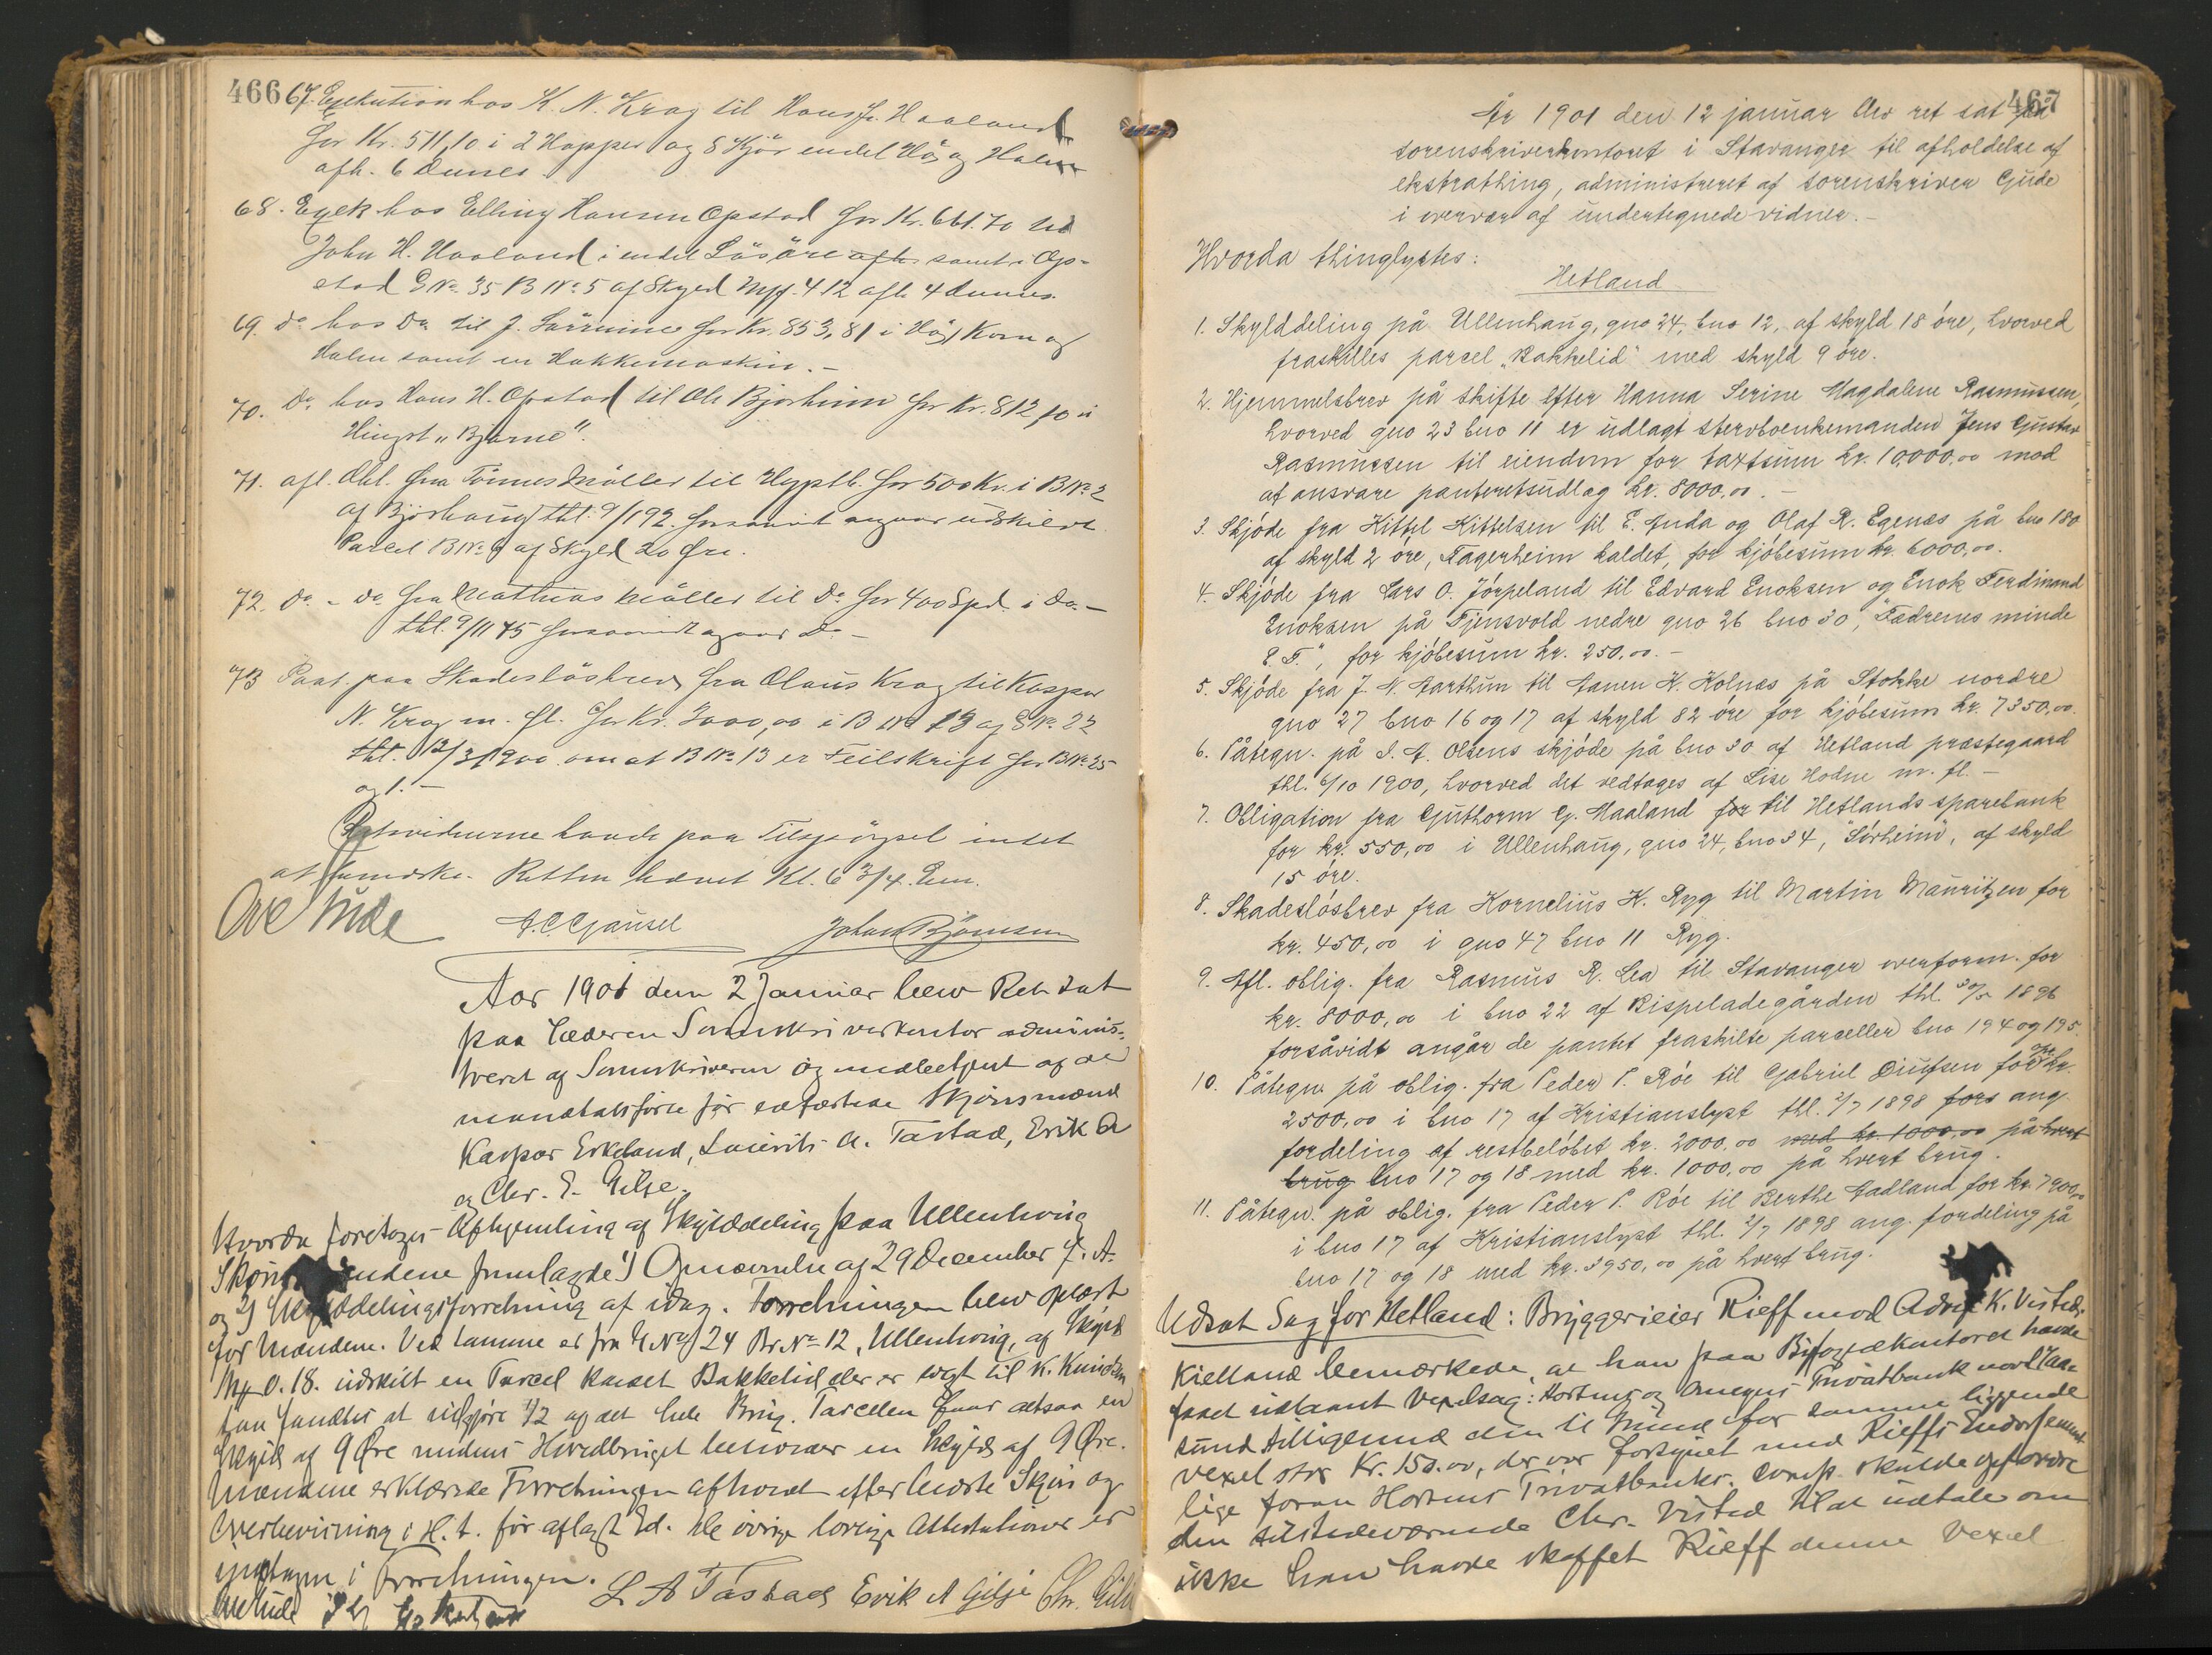 466
67. Exekution hos K. N. Krag til Hans J. Haaland
for Kr. 511,10 i 2 Hopper og 8 Kjör endel Hö og Halm
afh. 6 dennes.
68. Exek hos Elling Hansen Opstad for Kr. 661.70 til
John H. Haaland i endel Lösöre afh. samt i Op-
stad GNo. 35 BNo. 5 af Skyld Mk. 4.12 afh 4 dennes.
69. do hos Do til J. for Kr. 853,81 i Hö, Korn og
Halm samt en Hakkemaskin. -
70. Do hos Hans H. Opstad til Ole Bjorheim for Kr. 812,10 i
Hingst „Bjarne".
71. afl. Obl. fra Tönnes Möller til Hypthb. for 500 Kr. i BNo. 2
af Bjorhaug thl. 9/1 92. forsaavidt angaar udskilt
Parcel BNo. 9 af Skyld 20 Öre.
72. Do - Do fra Mathias Möller til Do for 400 Spd. i Do -
thl. 9/11 75 forsaavidt angaar Do -
73 Paat. paa Skadeslösbrev fra Claus Krag til Kaspar
N. Krag m. fl. for Kr. 3000,00 i BNo 13 af GNo. 22
thl. 12/3 1900 om at BNo. 13 er Feilskrift for BNo. 25
og 1. -
Retsvidnerne havde paa Tilspörgsel intet
at bemærke. Retten hævet Kl. 6 3/4. Em.
Ove Gude A. C. Gausel Johan Bjönnsen
Aar 1901 den 2 Januar blev Ret sat
paa Jæderen Sorenskriverkontor adminis-
treret af Sorenskriveren og medbetjent af de
mandtalsførte før edfæstede Skjønsmænd
Kaspar Eskeland, Laurits A. Tastad, Erik A
og Chr. E. Gilje.
Hvorda foretoges Afhjemling af Skylddeling paa Ullenhoug
Skjønsmændene fremlagde 1) Opnævnelse af 29 December f. A.
og 2) Skylddelingsforretning af idag. Forretningen blev oplæst
for Mændene. Ved samme er fra G No 24 Br. No 12, Ullenhoug, af Skyld
Mk 0.18. udskilt en Parcel kaldet Bakkelid der er solgt til K. Knudsen
han fandtes at udgjøre 1/2 af det hele Brug. Parcellen faar altsaa en
Skyld af 9 Øre medens Hovedbruget beholder en Skyld af 9 Øre.
Mændene erklærede Forretningen afholdt efter bedste Skjøn og
Overbevisning i H. t. før aflagt Ed. De øvrige lovlige Attestationer er
indtagen i Forretningen.
Ove Gude L A Tastad Erik A Gilje Chr. Gilje
467
År 1901 den 12 januar blev ret sat på
sorenskriverkontoret i Stavanger til afholdelse af
ekstrathing, administreret af sorenskriver Gude
i overvær af undertegnede vidner. -
Hvorda thinglystes:
Hetland
1. Skylddeling på Ullenhaug, gno 24, bno 12, af skyld 18 öre, hvorved
fraskilles parcel „Bakkelid" med skyld 9 öre.
2. Hjemmelsbrev på skifte efter Hanna Serine Magdalene Rasmussen,
hvorved gno 23 bno 11 er udlagt stervboenkemanden Jens Gustav
Rasmussen til eiendom for taxtsum kr. 10,000,00 mod
at ansvare panteretsudlæg kr. 8000,00. -
3. Skjöde fra Kittel Kittelsen til E. Auda og Olaf R. Egenæs på bno 180
af skyld 2 öre, Fagerheim kaldet, for kjöbesum kr. 6000,00.
4. Skjöde fra Lars O. Jörpeland til Edvard Enoksen og Enok Ferdinand
Enoksen på Tjensvold nedre gno 26 bno 30, "Fædrenes minde
E. F.", for kjöbesum kr. 250,00. -
5. Skjöde fra J. N. Aarthun til Aanen K. Kolnæs på Stokke nordre
gno 27 bno 16 og 17 af skyld 82 öre for kjöbesum kr. 7350,00.
6. Påtegn. på I. A. Olsens skjöde på bno 30 af Hetland præstegaard
thl. 6/10 1900, hvorved det vedtages af Lise Hodne m. fl. -
7. Obligation fra Guthorm G. Haaland for til Hetlands sparebank
for kr. 550,00 i Ullenhaug, gno 24, bno 34, "Sörheim", af skyld
15 öre.
8. Skadeslösbrev fra Kornelius K. Ryg til Martin Mauritzen for
kr. 450,00 i gno 47 bno 11 Ryg.
9. Afl. oblig. fra Rasmus R. Lea til Stavanger overform. for
kr. 8000,00 i bno 22 af Bispeladegården thl. 30/5 1896
forsåvidt angår de pantet fraskilte parceller bno 194 og 195.
10. Påtegn. på oblig. fra Peder P. Röe til Gabriel Diufsen for opr. kr.
2500,00 i bno 17 af Kristianslyst thl. 2/7 1898 fors ang.
fordeling af restbelöbet kr. 2000,00 med kr. 1000,00 på hvert
brug bno 17 og 18 med kr. 1000,00 på hvert brug.
11. Påtegn. på oblig. fra Peder P. Röe til Berthe Aadland for kr. 7900,00
i bno 17 af Kristianslyst thl. 2/7 1898 ang. fordeling på
bno 17 og 18 med kr. 3950,00 på hvert brug.
Udsat Sag for Hetland: Bryggerieier Rieff mod Adv. K. Visted.
Kielland bemærkede, at han paa Byfogedkontoret havde
faaet udlaant Vexelsag: Hortens og Omegns Privatbank mod Taa-
sund tilligemed den til Grund for samme liggende
Vexel stor Kr. 150.00, der var forsynet med Rieffs Endossement
lige foran Hortens Privatbanks. Comp. skulde opfordre
den tilstedeværende Chr. Visted til at udtale om
ikke han havde skaffet Rieff denne Vexel